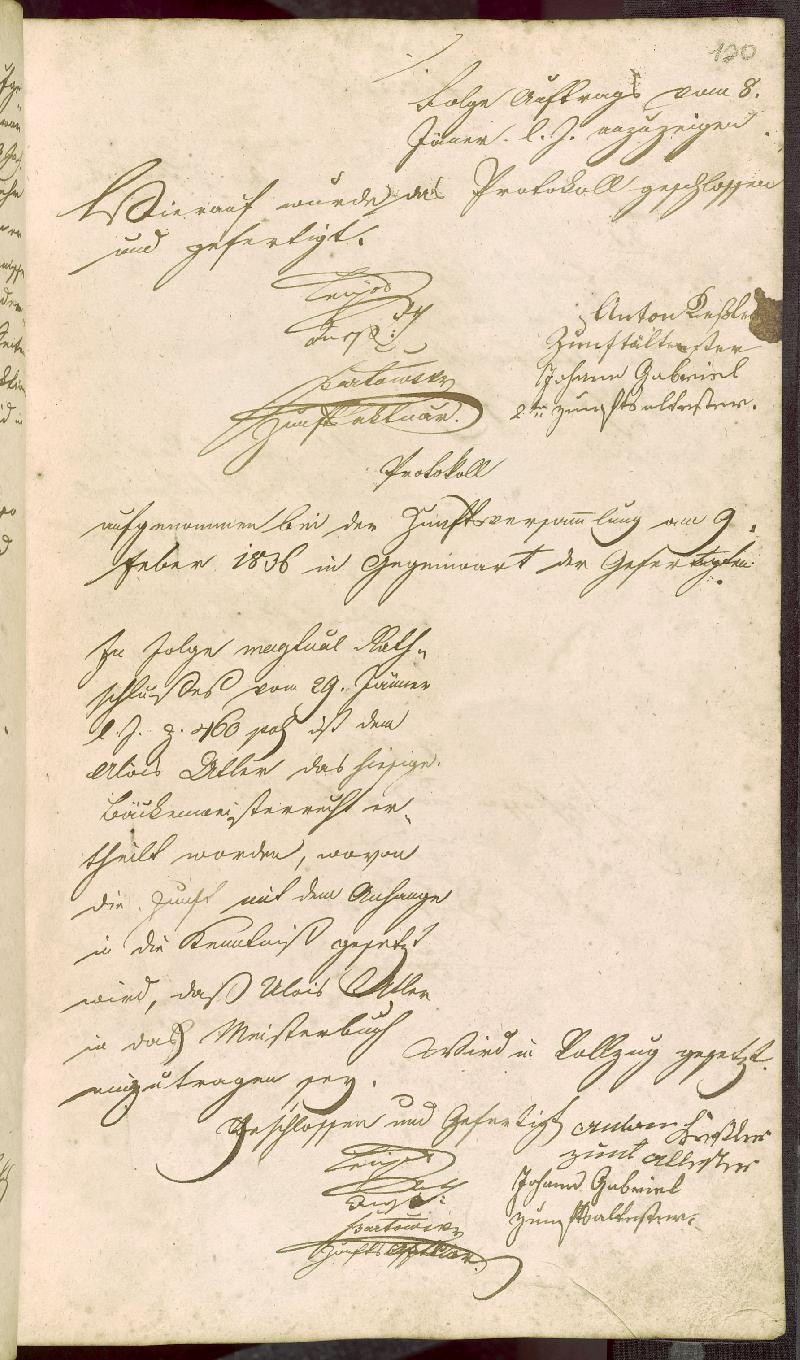 120
Folge Auftrags vom 8.
Jäner l. J. anzuzeigen.
Hierauf wurde das Protokoll geschlossen
und gefertigt.
Anton Keßler
Zunftältester
Johann Gabriel
2ter Zunftsältester.
Zunftsaktuar.
Protokoll
aufgenommen bei der Zunftsversammlung am 9.
Feber 1836 in Gegenwart der Gefertigten.
In Folge magtual Rath-
schlußes vom 29. Jänner
l. J. z. 460 pol ist dem
Alois Adler das hiesige
Bäckermeisterrecht er-
theilt worden, wovon
die Zunft mit dem Anhange
in die Kenntniß gesetzt
wird, daß Alois Adler
in das Meisterbuch
einzutragen sey.
Wird in Vollzug gesetzt.
Geschlossen und Gefertigt
Anton Keßler
zunft ältester
Johann Gabriel
Zunftsältester.
Zunftsaktuar.